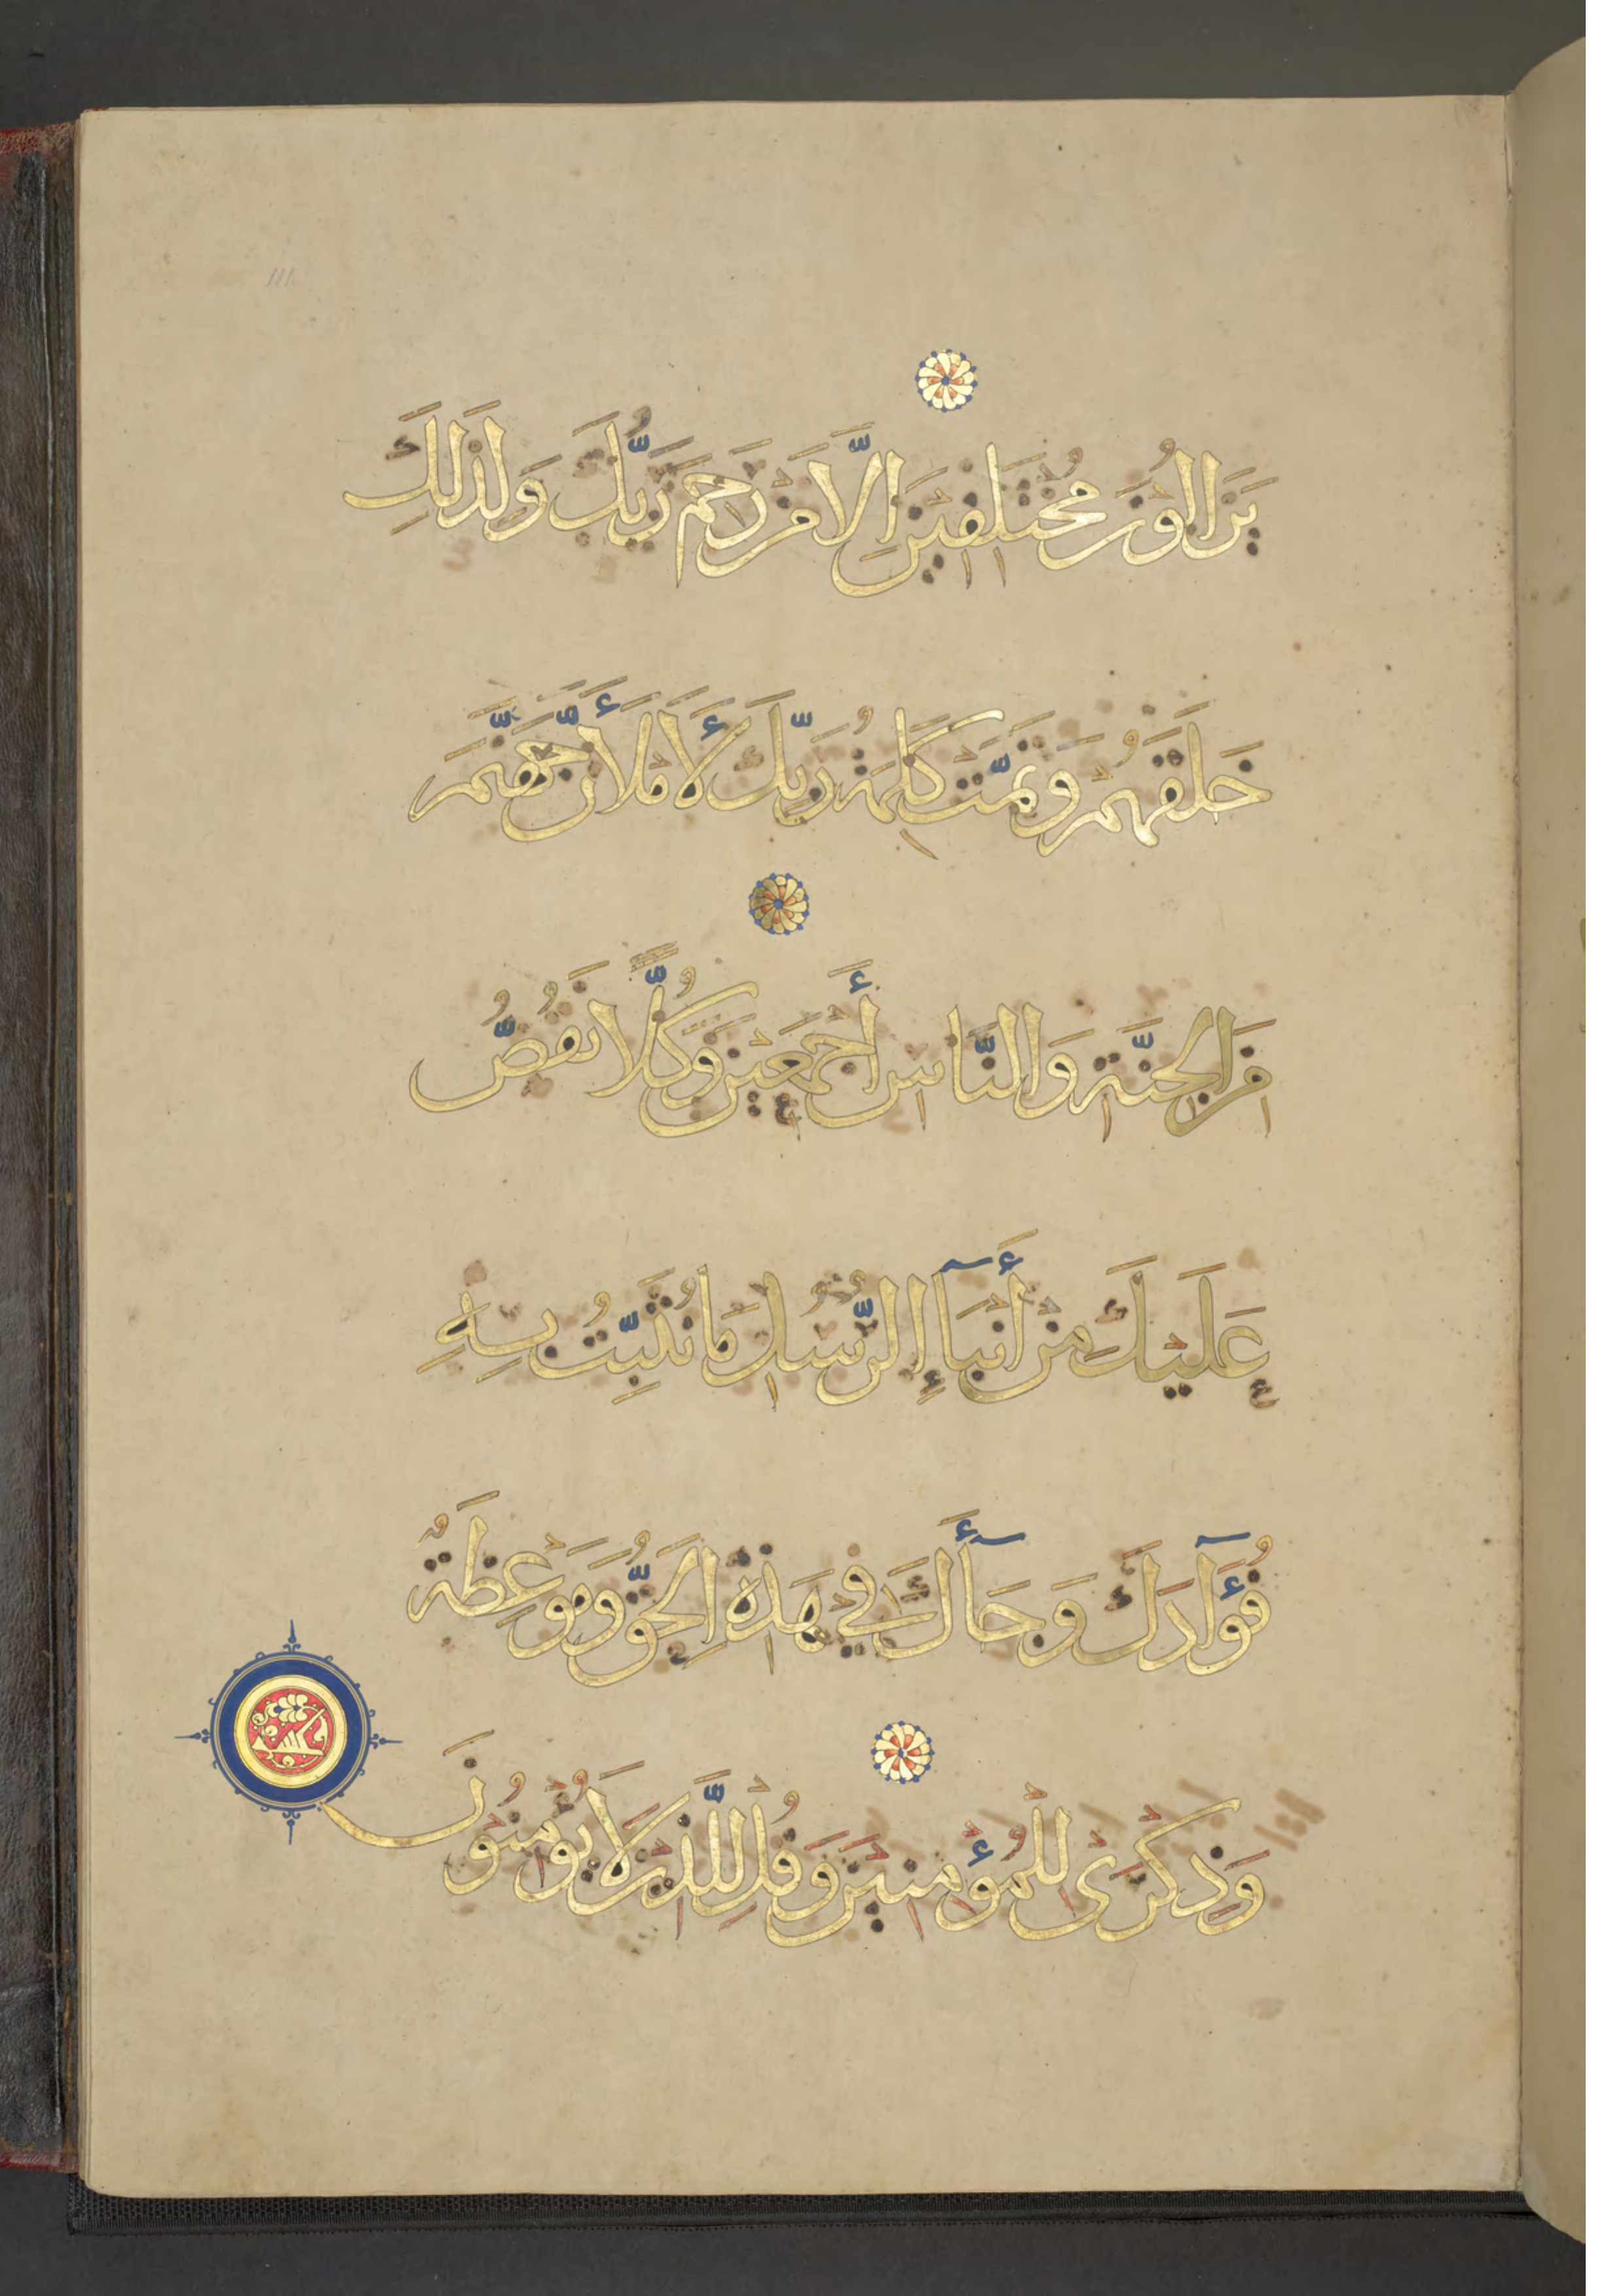 يَزَالُونَ مُخْتَلِفِينَ إِلَّا مَنْ رَحِمَ رَبُّكَ وَلِذَلِكَ
خَلَقَهُمْ وَتَمَّتْ كَلِمَةُ رَبِّكَ لَأَمْلَأَنَّ جَهَنَّمَ
مِنَ الْجِنَّةِ وَالنَّاسِ أَجْمَعِينَ وَكُلًّا نَقُصُّ
عَلَيْكَ مِنْ أَنْبَآءِ الرُّسُلِ مَا نُثَبِّتُ بِهِ
فُؤَآدَكَ وَجَآءَكَ فِي هَذِهِ الْحَقُّ وَمَوْعِظَةٌ
وَذِكْرَى لِلْمُؤْمِنِينَ وَقُلْ لِلَّذِينَ لَا يُؤْمِنُونَ
111.